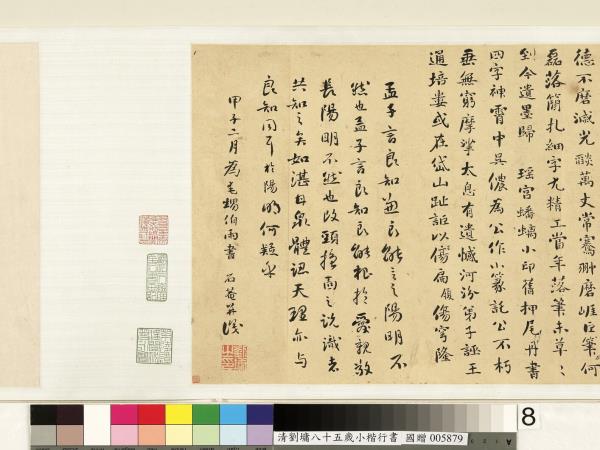 德不磨滅光燄萬丈常騫翀磨崖巨筆何
磊落簡扎細字尤精工當年落筆未草〻
到今遺墨歸 瑤宮蟠螭小印舊押尾丹書
四字神霄中吳儂為公作小篆託公不朽
垂無窮摩挲太息有遺憾河汾弟子誣王
通培塿或在岱山趾詎以傷穹隆
孟子言良知兼良能言之陽明不
然也孟子言良知良能根於愛親敬
長陽明不然也改頭換面之說識者
共知之矣如湛甘泉體認天理亦與
良知同耳於陽明何疑乎
甲子二月為 伯雨書 石菴并識
清劉墉八十五歲小楷行書 國贈 005879
8